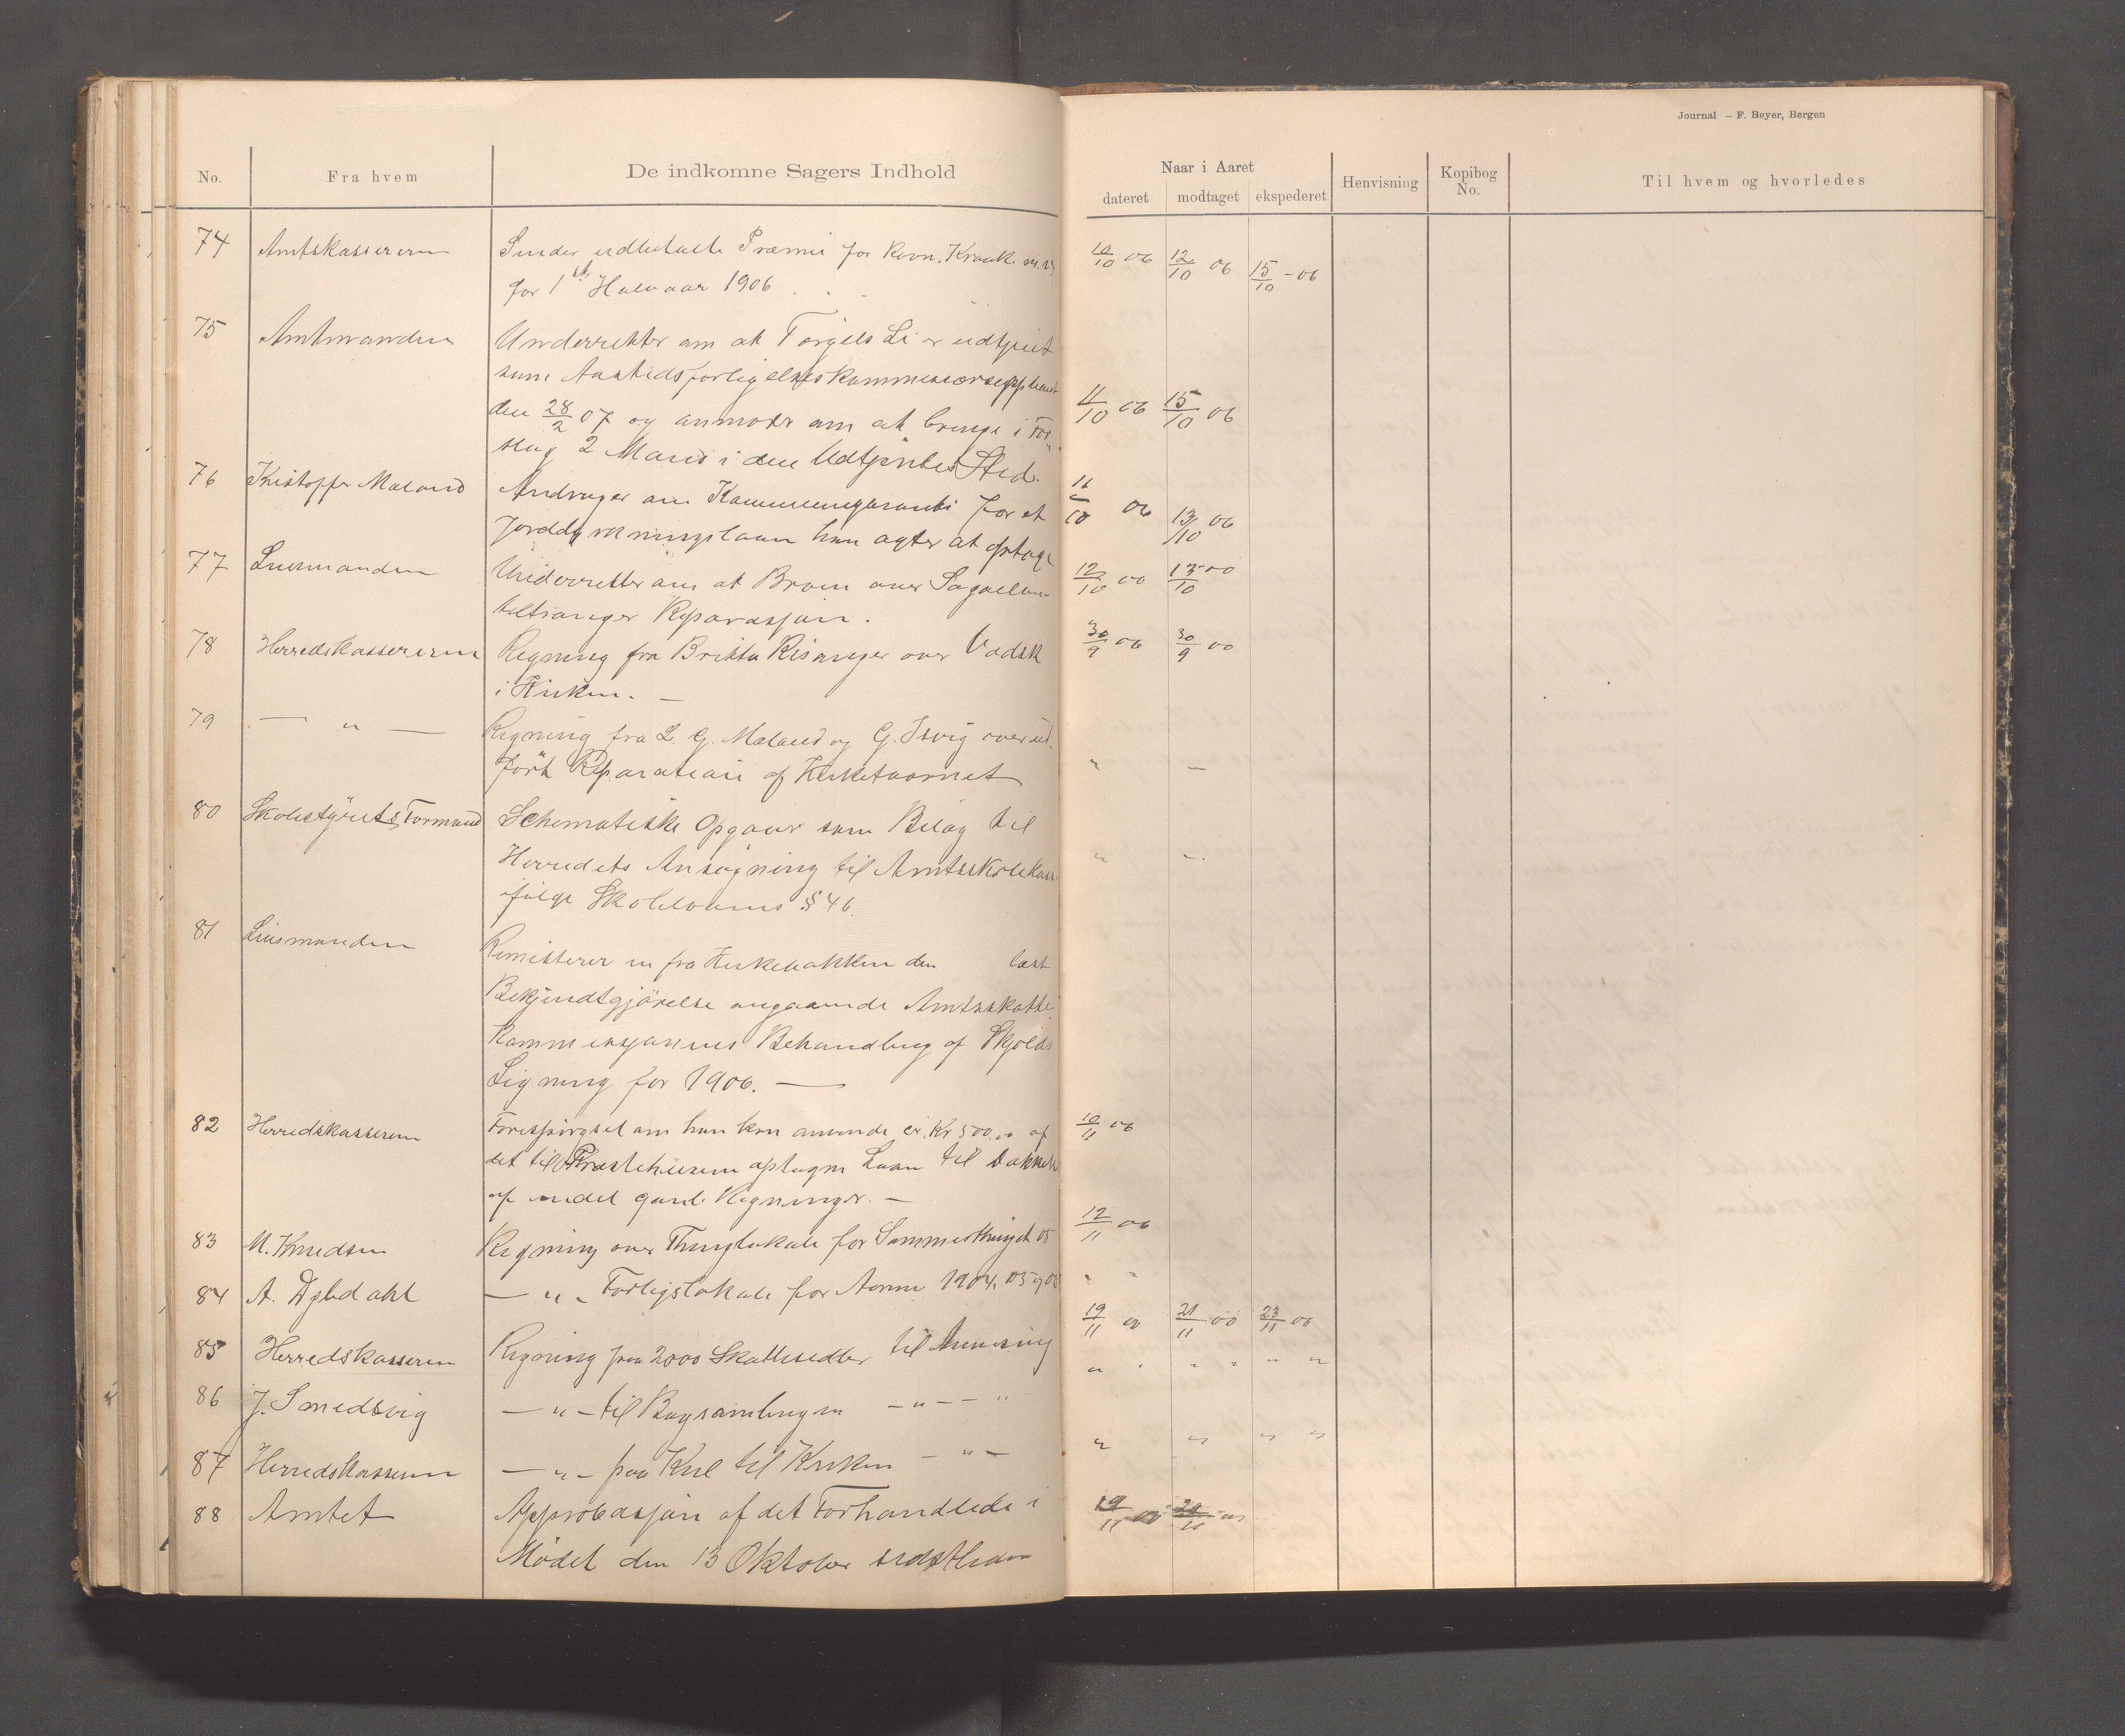 Journal – F. Beyer, Bergen
No. Fra hvem De indkomne Sagers Indhold Naar i Aaret dateret modtaget ekspederet Henvisning Kopibog No. Til hvem og hvorledes
74 Amtskassereren Sender udbetalte Præmier for Ravn, Kraak. m. v. 10/10 06 12/10 06 15/10 - 06
for 1ste Halvaar 1906
75 Amtmanden Underretter om at Torgels Li er udtjent
som Aastedsforligelseskommissær
den 28/2 07 og anmoder om at bringe i For- 11/10 06 15/10 06
slag 2 Mand i den Udtjentes Sted.
76 Kristoffer Maland Andrager om Kommunegaranti for et 11/10 06 13/10 06
Jorddyrkningslaan han agter at optage
77 Lensmanden Underretter om at Broen over 12/10 06 13/10 06
tiltrænger Reparasjon.
78 Herredskassereren Regning fra Britha Risanger over Vadsk 30/9 06 30/9 06
i Kirken. —
79 — " — Regning fra L. G. Maland og G. Isvig over ud-
ført Reparation af Kirketaarnet " —
80 Skolestyrets Formand Schematiske Opgaver som Bilag til
Herredets Ansøgning til Amtsskolekass " "
ifølge Skolelovens § 46.
81 Lensmanden Remitterer en fra Kirkebakken den læst
Bekjendtgjørelse angaaende Amtsskatte
Kommissjonens Behandling af Skjolds
Ligning for 1906. —
82 Herredskassereren Forespørgsel om han kan anvende Kr 500,00 af 10/11 06
det til Præstehusene optagne Laan til Dækkelse
af endel gamle Regninger. —
83 M. Knudsen Regning over Thinglokale for Sommerthinget 05 12/11 06
84 A. Dybdahl — " - Forligslokale for Aarene 1904, 05 og 06 " "
85 Herredskasseren Regning paa 2000 Skattesedler til Anvisning 19/11 06 21/11 06 23/11 06
86 J. Smedsvig — " - til Bogsamlingen — " — " " " " " "
87 Herredskasseren — " - paa Kul til Kirken — " — " " " "
88 Amtet Approbasjon af det Forhandlede i 19/11 06 20/11 06
Mødet den 13 Oktober sidstleden